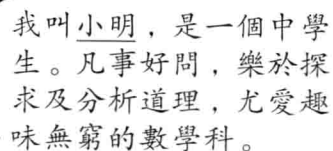 我叫小明，是一個中學
生。凡事好問，樂於探
求及分析道理，尤愛趣
味無窮的數學科。